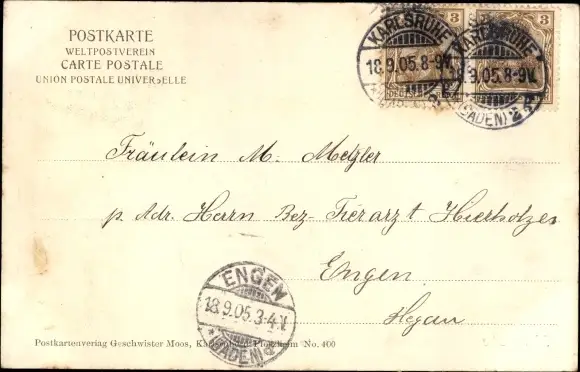 POSTKARTE
WELTPOSTVEREIN
CARTE POSTALE
UNION POSTALE UNIVERSELLE
3 3
KARLSRUHE KARLSRUHE
18.9.05.8-9V. 18.9.05.8-9V.
(BADEN) 2
Fräulein M. Metzler
p. Adr. Herrn Bez- Tierarzt Hierholzer
Engen
Hegau
ENGEN
18.9.05.3-4.V.
(BADEN)
Postkartenverlag Geschwister Moos, Karlsruhe-Pforzheim No. 400